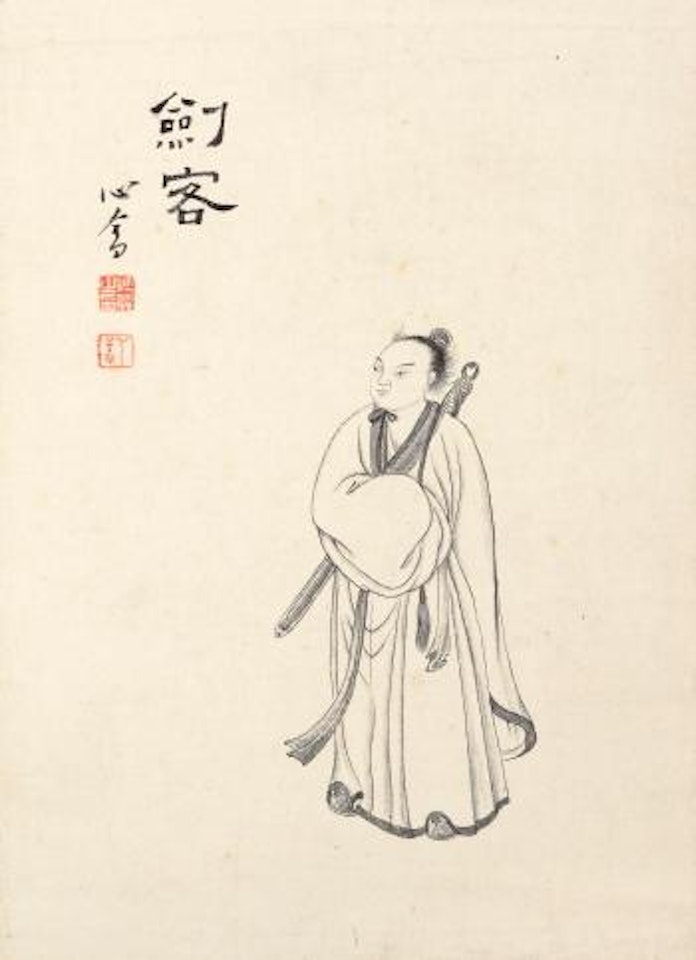 劍客
心畬